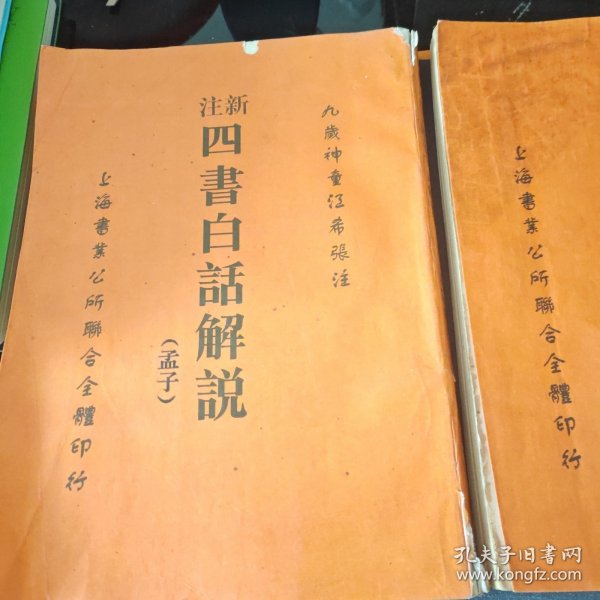 九歲神童江希張注
新注
四書白話解説
(孟子)
上海書業公所聯合全體印行
上海書業公所聯合全體印行
孔夫子旧书网
www.kongfz.com